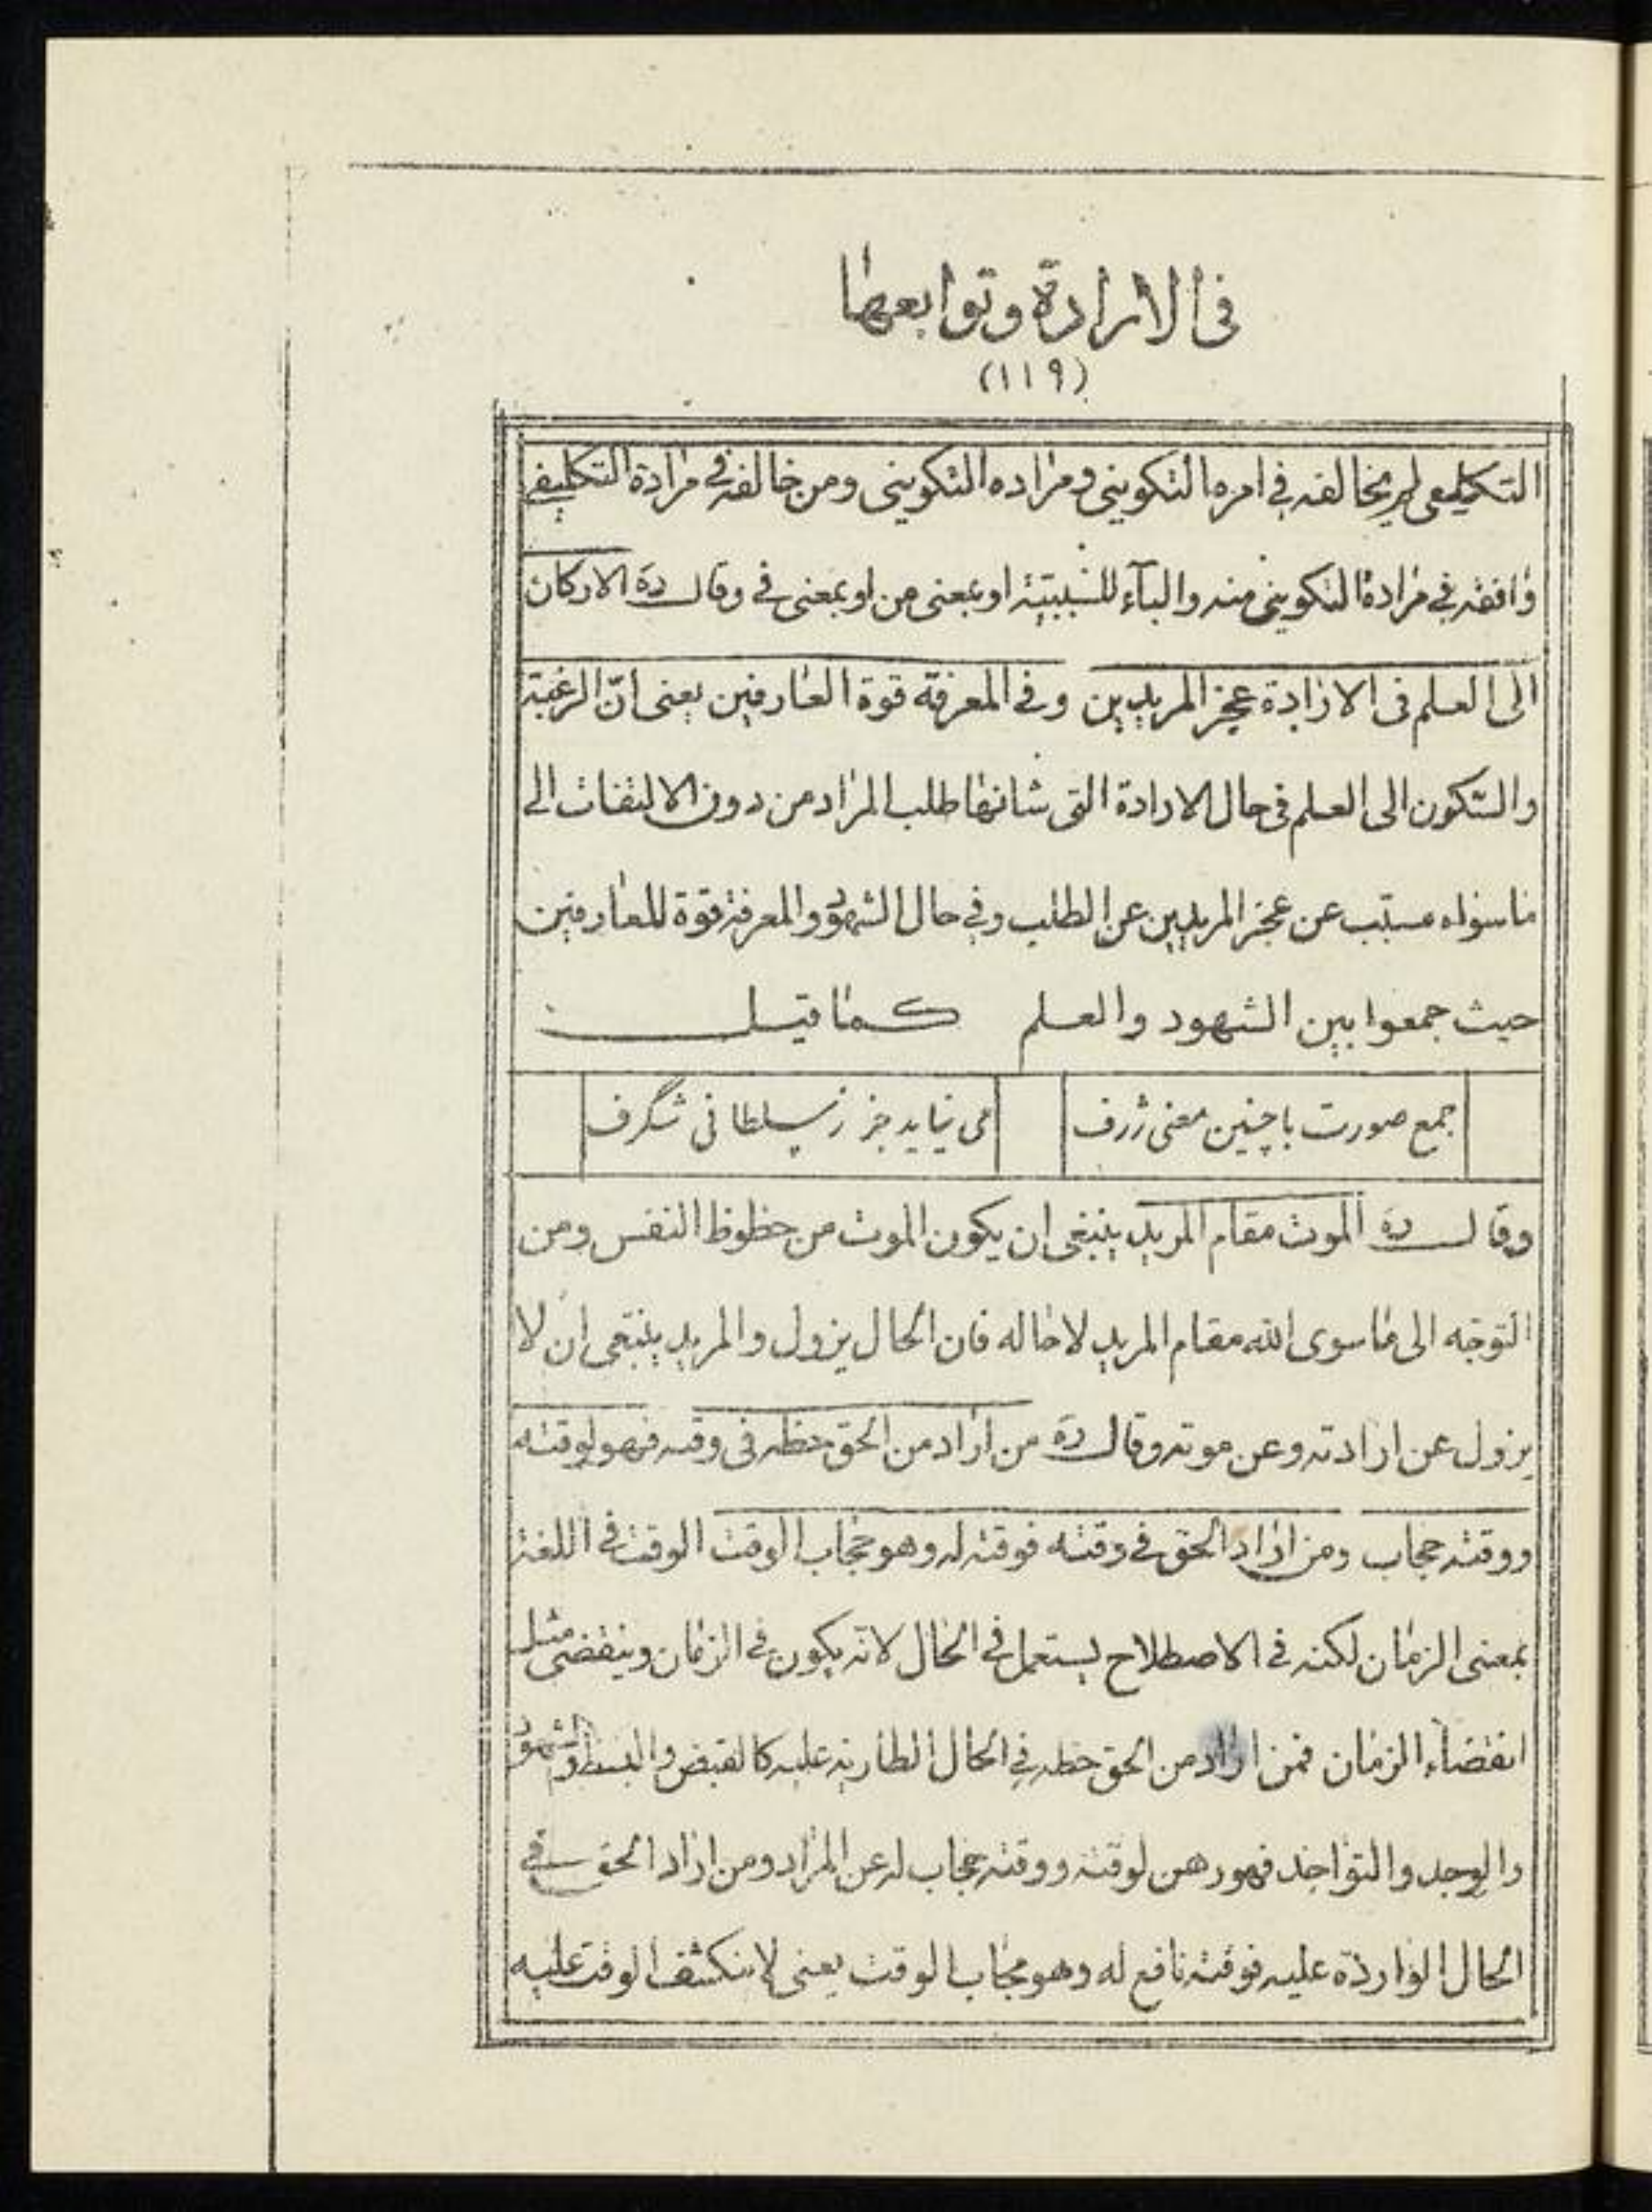 فى الارادة وتوابعها
(١١٩)
التكليفى لم يخالفه فى امره التكوينى ومراده التكوينى ومن خالفه فى مراده التكليفى
وافقه فى مراده التكوينى منه والبآء للسببيّة او بمعنى من او بمعنى فى وقال ره الاركان
الى العلم فى الارادة عجز المريدين وفى المعرفة قوة العارفين يعنى انّ الرغبة
والسّكون الى العلم فى حال الارادة التى شانها طلب المراد من دون الالتفات الى
ماسواه مسبّب عن عجز المريدين عن الطلب وفى حال الشهود والمعرفة قوة للعارفين
حيث جمعوا بين الشهود والعلم كما قيل
جمع صورت با چنين معنى ژرف مى نيايد جز ز سلطانى شگرف
وقال ره الموت مقام المريد ينبغى ان يكون الموت من حظوظ النفس ومن
التوجّه الى ماسوى الله مقام المريد لاحاله فان الحال يزول والمريد ينبغى ان لا
يزول عن ارادته وعن موته وقال ره من اراد من الحق حظه فى وقته فهو لوقته
ووقته حجاب ومن اراد الحق فى وقته فوقته له وهو حجاب الوقت الوقت فى اللغة
بمعنى الزمان لكنه فى الاصطلاح يستعمل فى الحال لانّه يكون فى الزمان وينقضى مثل
انقضاء الزمان فمن اراد من الحق حظه فى الحال الطارية عليه كالقبض والبسط والشهود
والوجد والتواجد فهو رهن لوقته ووقته حجاب له عن المراد ومن اراد الحق فى
الحال الواردة عليه فوقته نافع له وهو حجاب الوقت يعنى لا ينكشف الوقت عليه